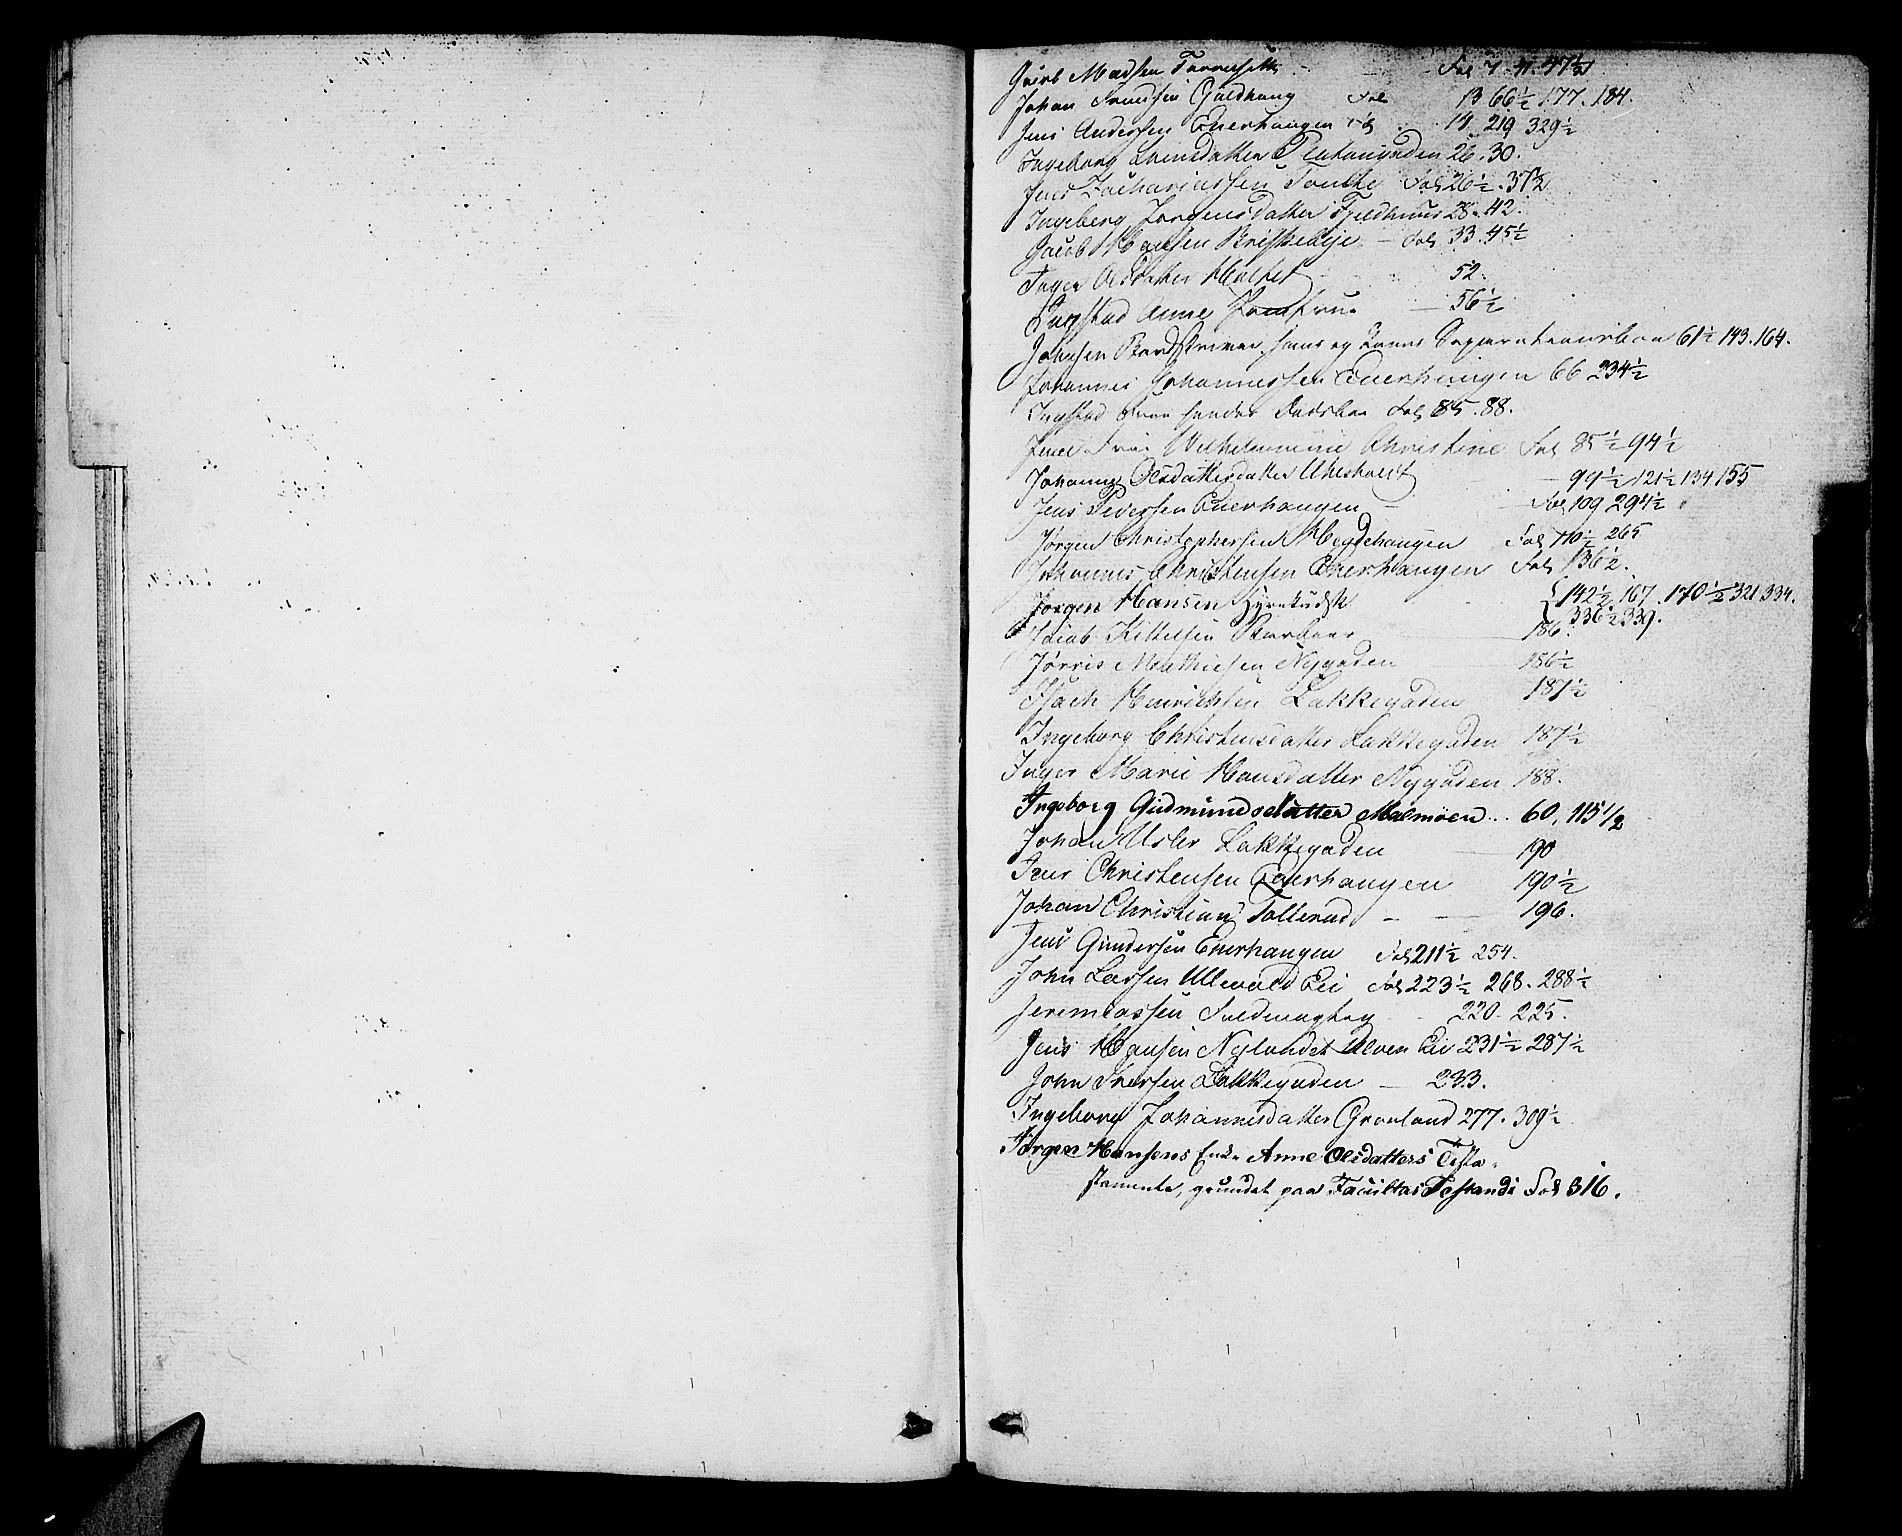 Jacob Madsen Fol 7. 11. 47½
Johan Fol 13 66½ 177. 184.
Jens Andersen Enerhaugen Fol 14. 219 329½
Ingeborg 26. 30.
Jens Zachariassen Fol 26½. 37½
Ingeberg Jørgensdatter Fjeldhuus 28. 42.
Jacob Hansen Briskebye – Fol 33. 45½
Inger Olsdatter 52.
Ingstad Anne 56½
Johnsen hans og Separationsboe 61½ 143. 164.
Johannes Johannessen Enerhaugen 66 234½
Ingstad Dødsboe Fol 85. 88.
Juel Frue Wilhelmine Christine Fol 85½ 94½
Johanne 99½ 121½ 134 155
Jens Pedersen Enerhaugen – Fol 109 294½
Jørgen Christophersen Hegdehaugen Fol 110½ 265
Johannes Christensen Enerhaugen Fol 136½.
Jørgen Hansen Hyrekudsk 142½. 167. 170½ 321 334.
336½ 339.
Jacob Kittelsen 186.
Jørris Mathiesen Nygaden 186½
Isach Henrichsen Lakkegaden 187½
Ingeborg Christensdatter Lakkegaden 187½
Inger Marie Hansdatter Nygaden 188.
Ingeborg Gudmundsdatter Malmøen .. 60, 115½
Johan Lakkegaden 190
Jens Christensen Enerhaugen 190½
Johan Christian Tollerud – 196.
Jens Gundersen Enerhaugen Fol 211½ 254.
John Larsen Ullevold Eie Fol 223½ 268. 288½
Jeremiassen Fuldmægtig 220. 225.
Jens Hansen Nylandet Ulven Eie 231½ 287½
John Iversen Lakkegaden – 233.
Ingeborg Johannesdatter Grønland 277. 309½
Jørgen Hansens Enke Anne Olsdatters Testa-
mente, grundet paa Facultas Testandi Fol 316.